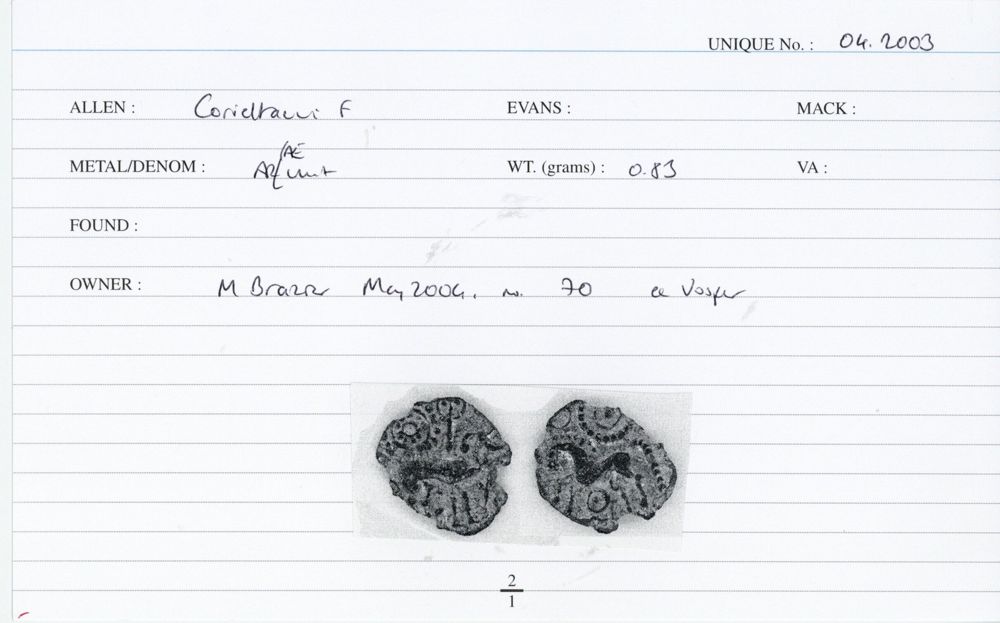 UNIQUE No. : 04.2003
ALLEN : Corieltauvi F EVANS : MACK :
METAL/DENOM : AR/AE unit WT. (grams) : 0.83 VA :
FOUND :
OWNER : M Brazier May 2004. no. 70 ex Vosper
2
1